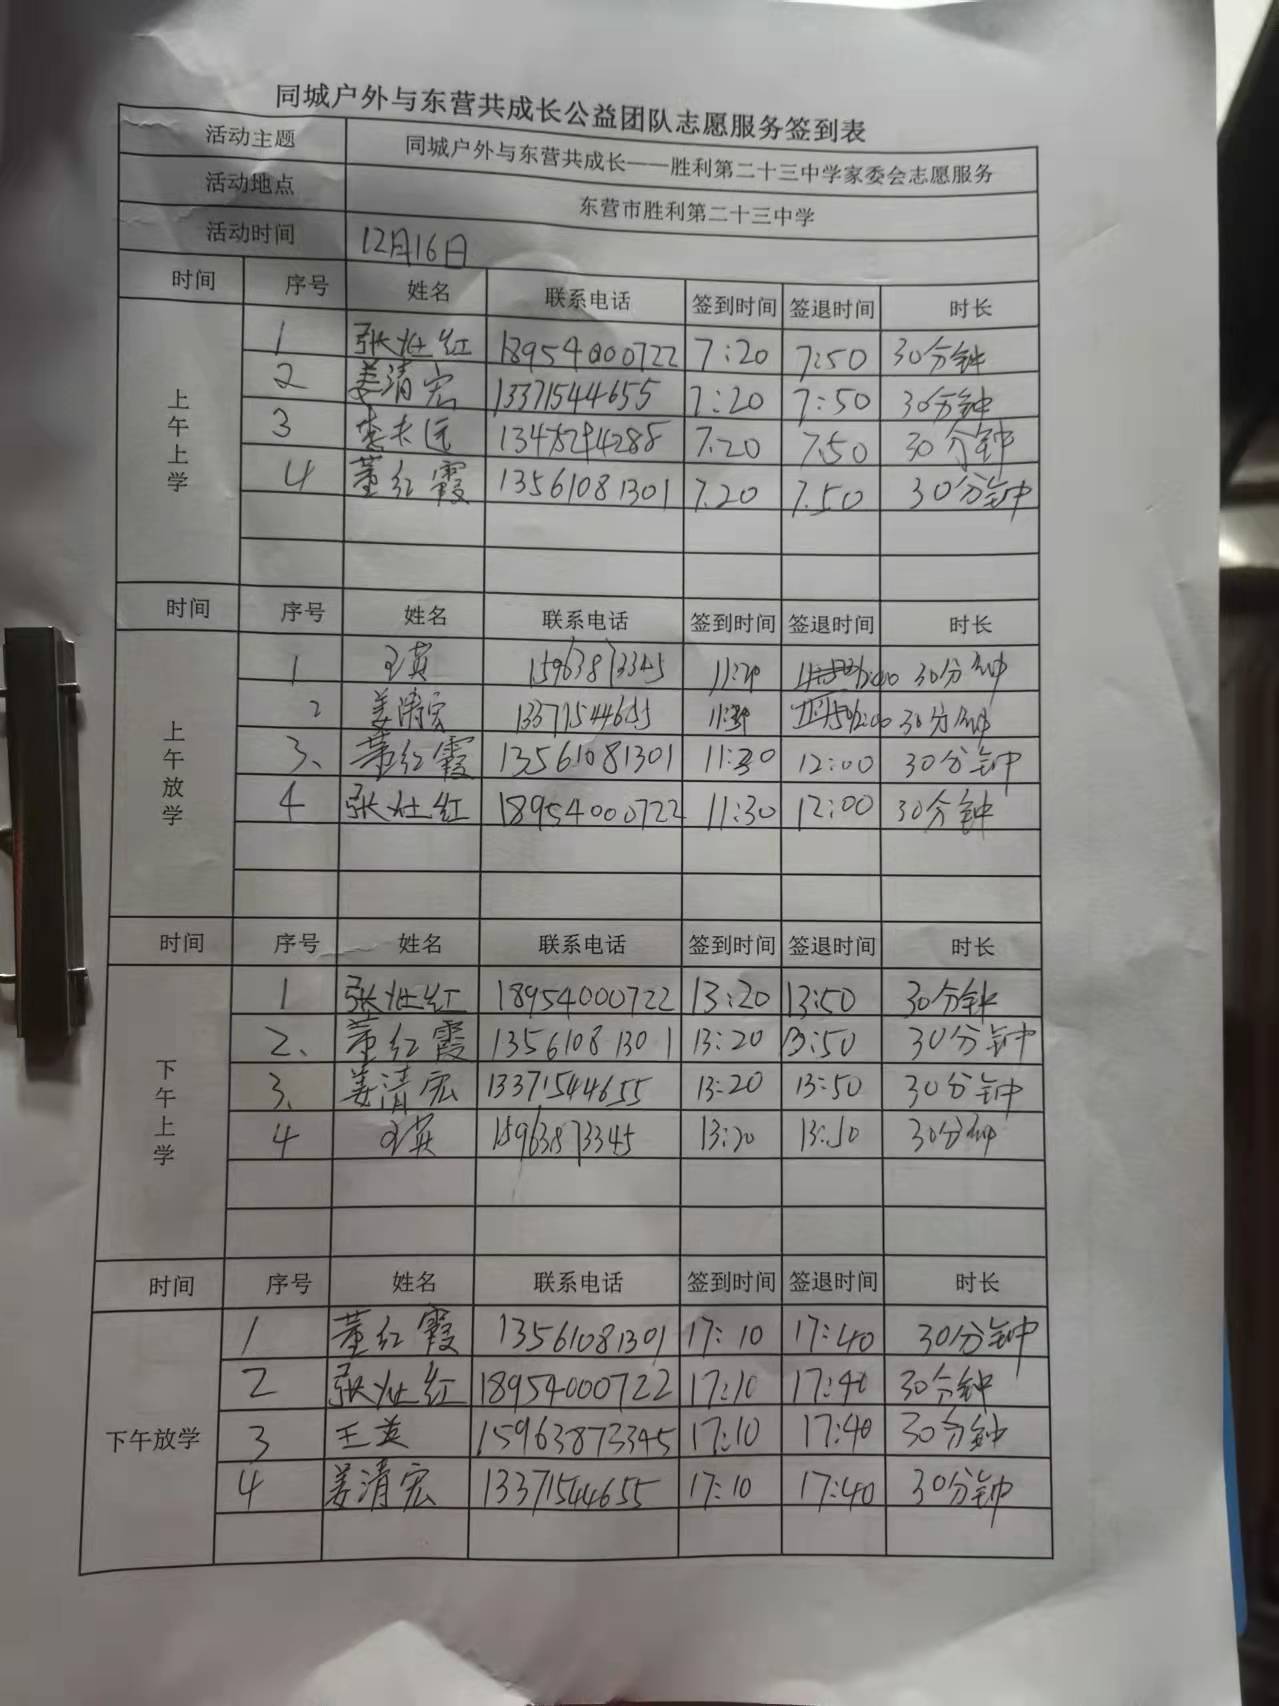 同城户外与东营共成长公益团队志愿服务签到表
活动主题 同城户外与东营共成长——胜利第二十三中学家委会志愿服务
活动地点 东营市胜利第二十三中学
活动时间 12月16日
时间 序号 姓名 联系电话 签到时间 签退时间 时长
上午上学
1 张灿红 18954000722 7:20 7:50 30分钟
2 姜清宏 13371544655 7:20 7:50 30分钟
3 7.20 7.50 30分钟
4 董红霞 13561081301 7.20 7.50 30分钟
时间 序号 姓名 联系电话 签到时间 签退时间 时长
上午放学
1 王英 15963873345 30分钟
2 姜清宏 13371544655 30分钟
3、 董红霞 13561081301 11:30 12:00 30分钟
4 张灿红 18954000722 11:30 12:00 30分钟
时间 序号 姓名 联系电话 签到时间 签退时间 时长
下午上学
1 张灿红 18954000722 13:20 13:50 30分钟
2、 董红霞 13561081301 13:20 13:50 30分钟
3、 姜清宏 13371544655 13:20 13:50 30分钟
4 王英 15963873345 13:20 13:50 30分钟
时间 序号 姓名 联系电话 签到时间 签退时间 时长
下午放学
1 董红霞 13561081301 17:10 17:40 30分钟
2 张灿红 18954000722 17:10 17:40 30分钟
3 王英 15963873345 17:10 17:40 30分钟
4 姜清宏 13371544655 17:10 17:40 30分钟